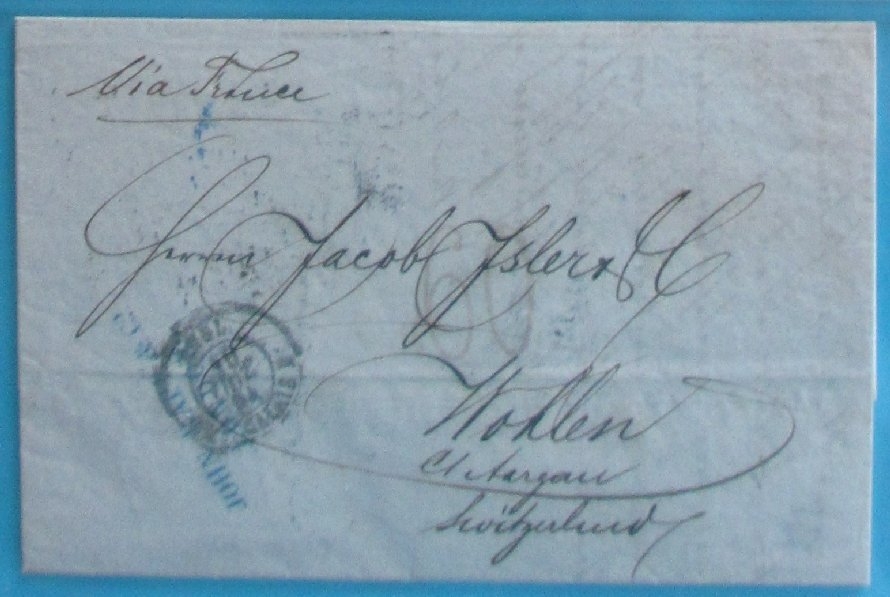 Via France
Herrn Jacob Isler & C
Wohlen
Ct Aargau
Switzerland